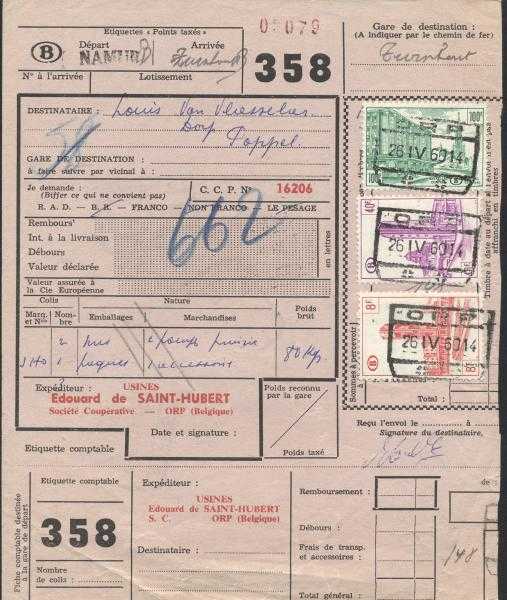 05079
Etiquettes « Points taxés »
Départ Arrivée
B NAMUR
N° à l'arrivée Lotissement
358
Gare de destination :
(A indiquer par le chemin de fer)
Turnhout
DESTINATAIRE : Louis Van
Dorp
Poppel
GARE DE DESTINATION :
à faire suivre par vicinal à :
Je demande :
(Biffer ce qui ne convient pas)
C. C. P. N° 16206
R. A. D. — B. R. — FRANCO — NON FRANCO — LE PESAGE
662
Rembours'
Int. à la livraison
Débours
Valeur déclarée
en lettres
Valeur assurée à
la Cie Européenne
Colis Nature Poids
brut
Marq. et Nos Nombre Emballages Marchandises
80 Kgs
Expéditeur : USINES
Edouard de SAINT-HUBERT
Société Coopérative — ORP (Belgique)
Date et signature :
Poids reconnu
par la gare
Poids taxé
Etiquette comptable
100F
ORP
26 IV 60 14
40F
ORP
26 IV 60 14
8F
ORP
26 IV 60 14
Sommes à percevoir
Timbre à date au départ si
affranchi en timbres
Reçu l'envoi le à
Signature du destinataire,
Fiche comptable destinée
à la gare de départ
Etiquette comptable
358
Nombre
de colis :
Expéditeur :
USINES
Edouard de SAINT-HUBERT
S. C. ORP (Belgique)
Destinataire :
Remboursement :
Débours :
Frais de transp.
et accessoires : 148
Total général :